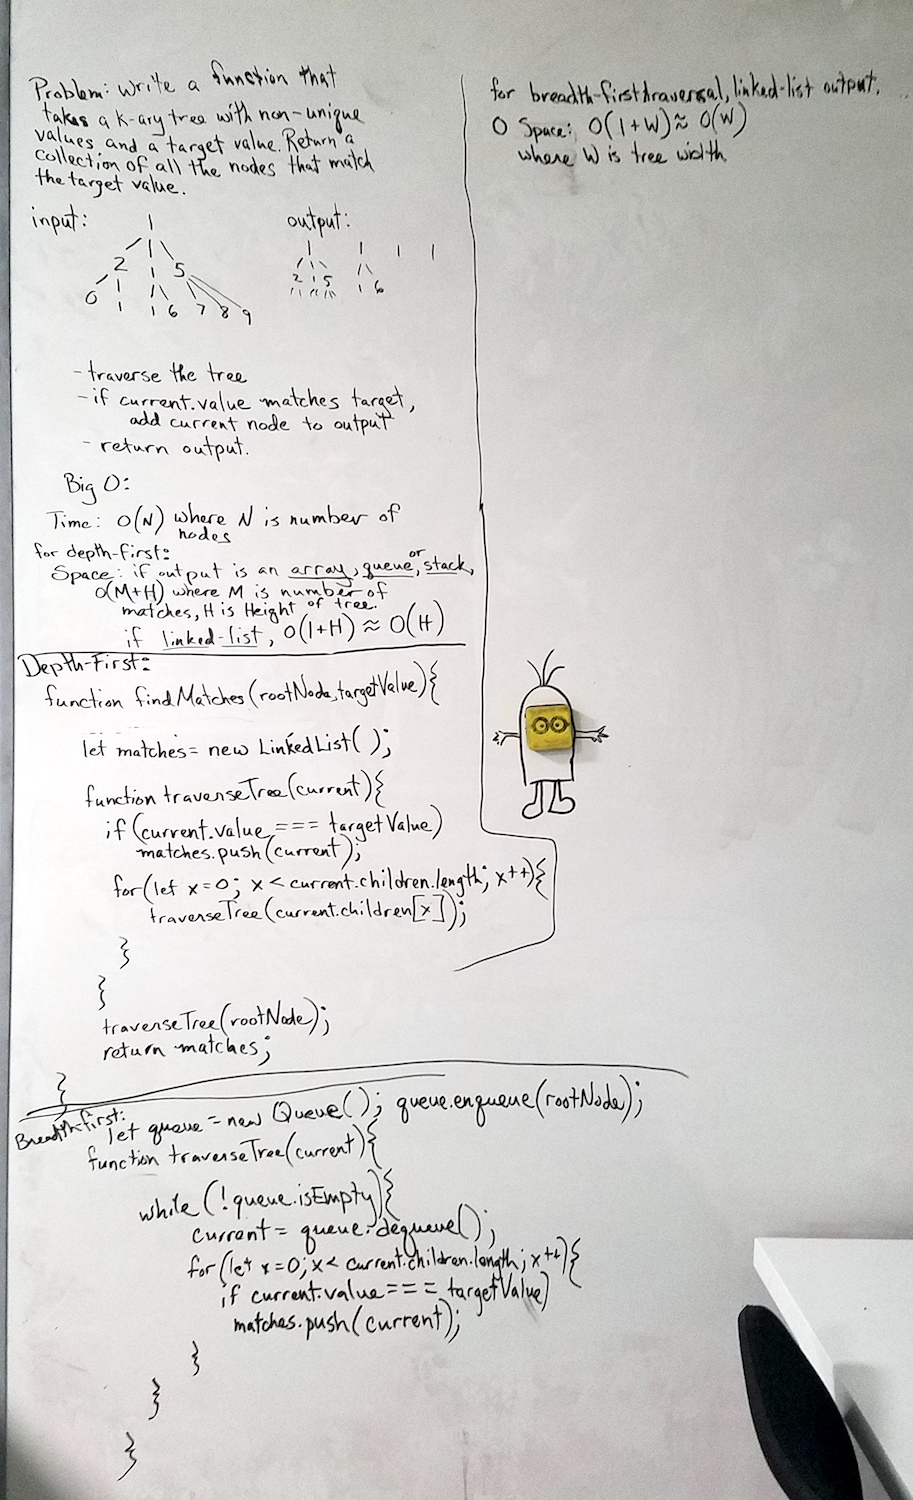 Problem: Write a function that
takes a K-ary tree with non-unique
values and a target value. Return a
collection of all the nodes that match
the target value.
input:
1
2 1 5
0 1 1 6 7 8 9
output:
1 1 1 1
2 1 5 1 6
- traverse the tree
- if current.value matches target,
add current node to output
- return output.
Big O:
Time: O(N) where N is number of
nodes
for depth-first:
Space: if output is an array, queue, or stack,
O(M+H) where M is number of
matches, H is Height of tree.
if linked-list, O(1+H) ≈ O(H)
Depth-First:
function findMatches(rootNode, targetValue){
let matches = new LinkedList();
function traverseTree(current){
if (current.value === targetValue)
matches.push(current);
for(let x=0; x < current.children.length; x++){
traverseTree(current.children[x]);
}
}
traverseTree(rootNode);
return matches;
}
Breadth-first:
let queue = new Queue(); queue.enqueue(rootNode);
function traverseTree(current){
while (!queue.isEmpty){
current = queue.dequeue();
for(let x=0; x< current.children.length; x++){
if current.value === targetValue)
matches.push(current);
}
}
}
for breadth-first traversal, linked-list output,
O Space: O(1+W) ≈ O(W)
where W is tree width